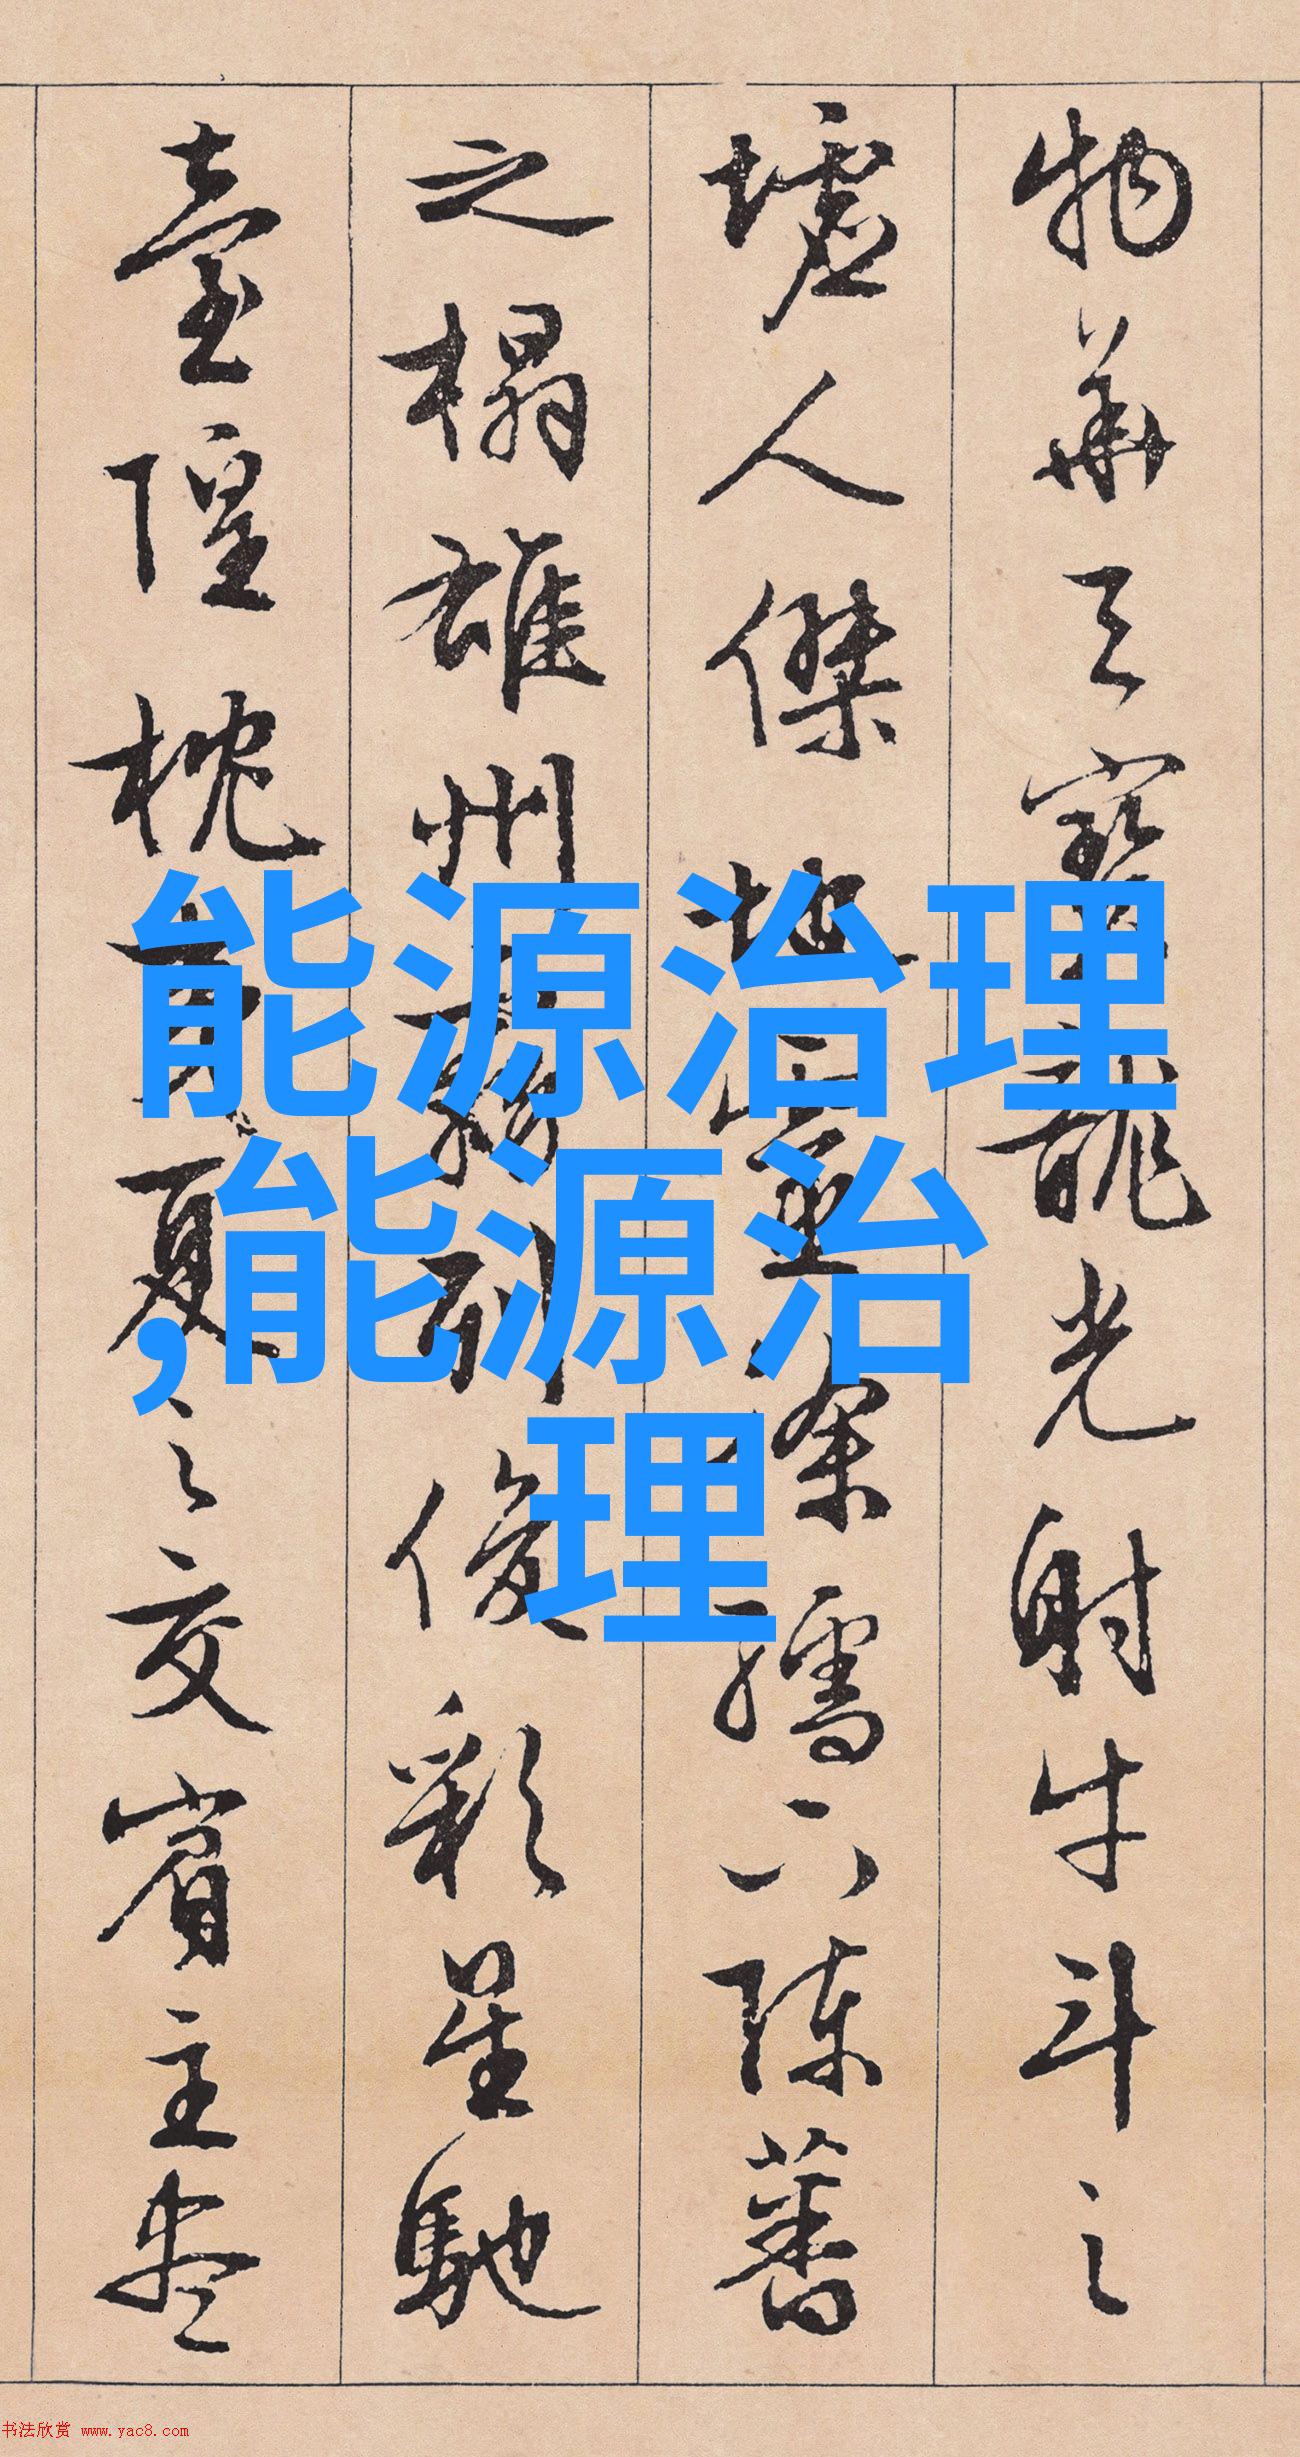 物華天寶龍光射牛斗之
墟人傑地靈徐孺下陳蕃
之榻雄州霧列俊彩星馳
臺隍枕夷夏之交賓主盡
能源治理
,能源治
理
书法欣赏 www.yac8.com